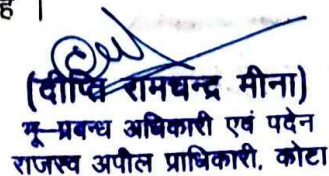 है ।
(दीप्ति रामचन्द्र मीना)
भू-प्रबन्ध अधिकारी एवं पदेन
राजस्व अपील प्राधिकारी, कोटा